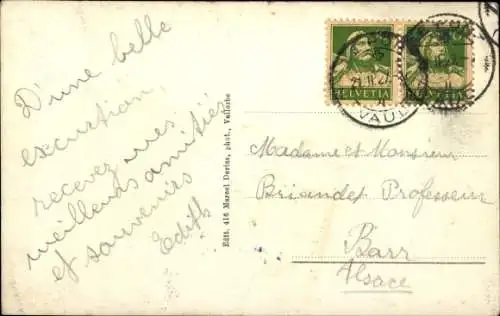 D'une belle
excurtion,
recevez mes
meilleurs amitiés
et souvenirs
Edith
Edit. 416 Marcel Derias, phot., Vallorbe
HELVETIA HELVETIA
VAUD
Madame et Monsieur
Briandet Professein
Barr
Alsace